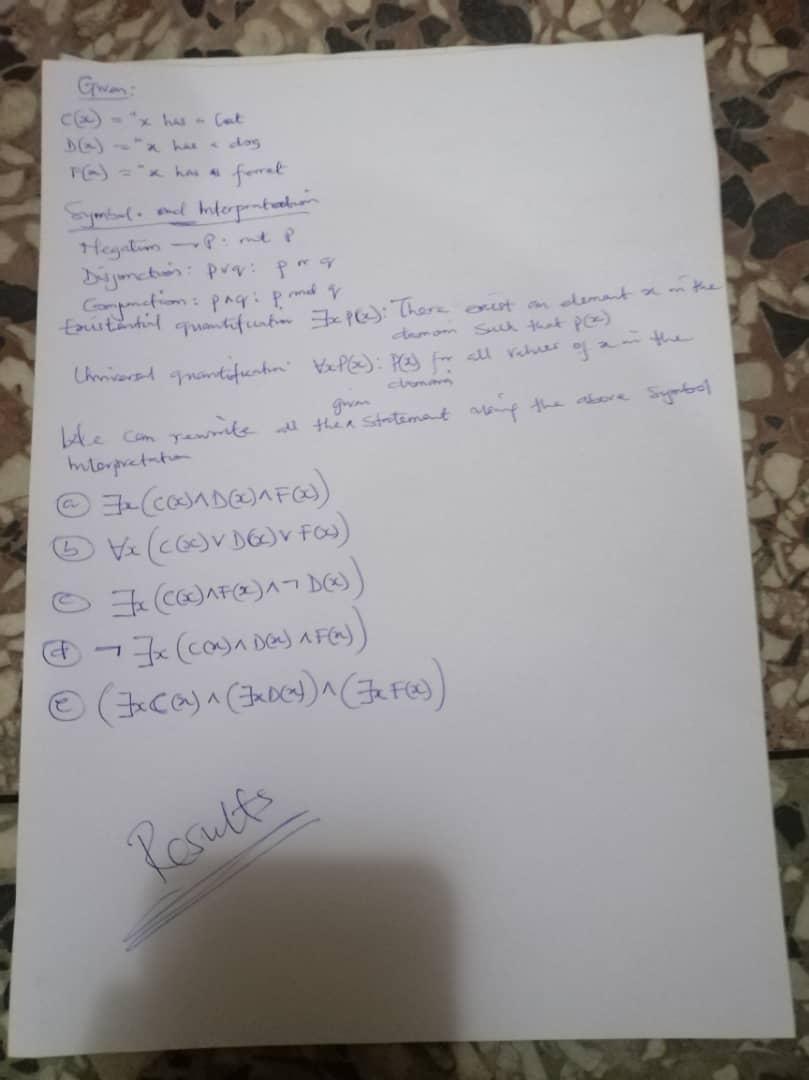 Given:
C(x) = "x has a Cat
D(x) = "x has a dog
F(x) = "x has a ferret
Symbol. and Interpretation
Negation ¬P: not P
Disjunction: p∨q: p or q
Conjunction: p∧q: p and q
Existential quantification ∃xP(x): There exist an element x in the
domain such that p(x)
Universal quantification ∀xP(x): P(x) for all values of x in the
domain
given
We can rewrite all the ʌ statement along the above Symbol
Interpretation
(a) ∃x(C(x)∧D(x)∧F(x))
(b) ∀x(C(x)∨D(x)∨F(x))
(c) ∃x(C(x)∧F(x)∧¬D(x))
(d) ¬∃x(C(x)∧D(x)∧F(x))
(e) (∃xC(x)∧(∃xD(x))∧(∃xF(x))
Results